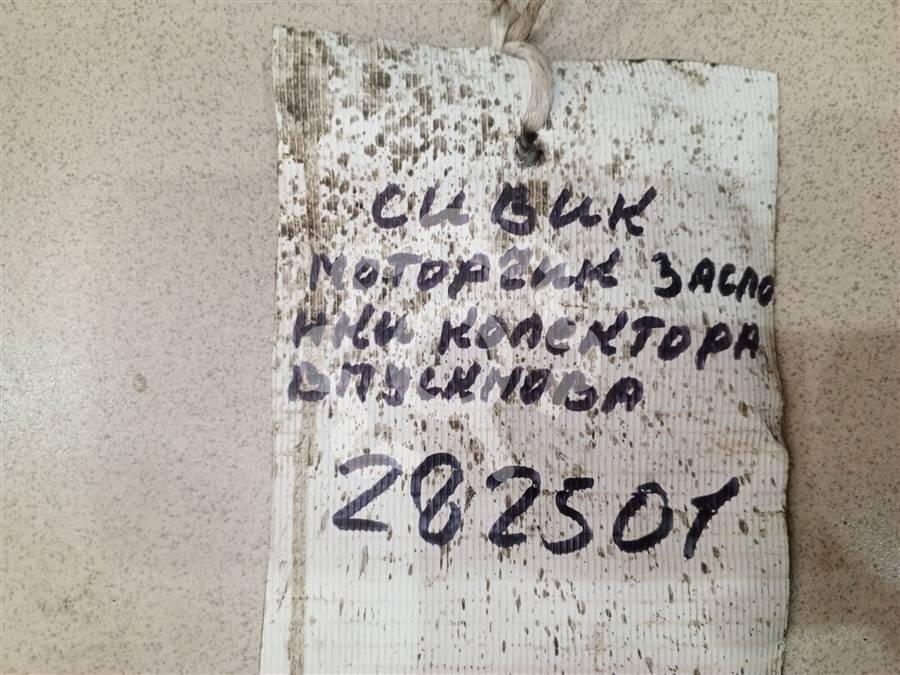 СИВИК
МОТОРЧИК ЗАСЛО
НКИ КОЛЕКТОРА
ВПУСКНОВА
282501